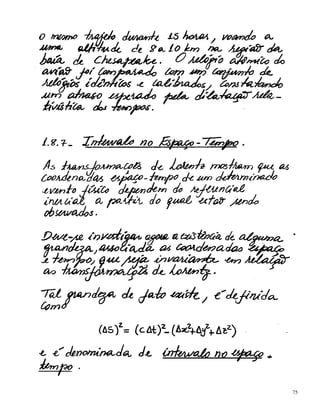 o mesmo trajeto durante 15 horas, voando a
uma altitude de 8 a 10 km na região da
baía de Chesapeake. O relógio atômico do
avião foi comparado com um conjunto de
relógios idênticos e calibrados, constatando
um atraso esperado pela dilatação rela-
tivística dos tempos.
1.8.7- Intervalo no Espaço-Tempo.
As transformações de Lorentz mostram que as
coordenadas espaço-tempo de um determinado
evento físico dependem do referencial
inercial a partir do qual estão sendo
observados.
Deve-se investigar agora a existência de alguma
grandeza, associada as coordenadas espaço
e tempo, que seja invariante em relação
as transformações de Lorentz.
Tal grandeza de fato existe, e é definida
como
(ΔS)²= (cΔt)²-(Δx²+Δy²+Δz²)
e é denominada de intervalo no espaço-
tempo.
75